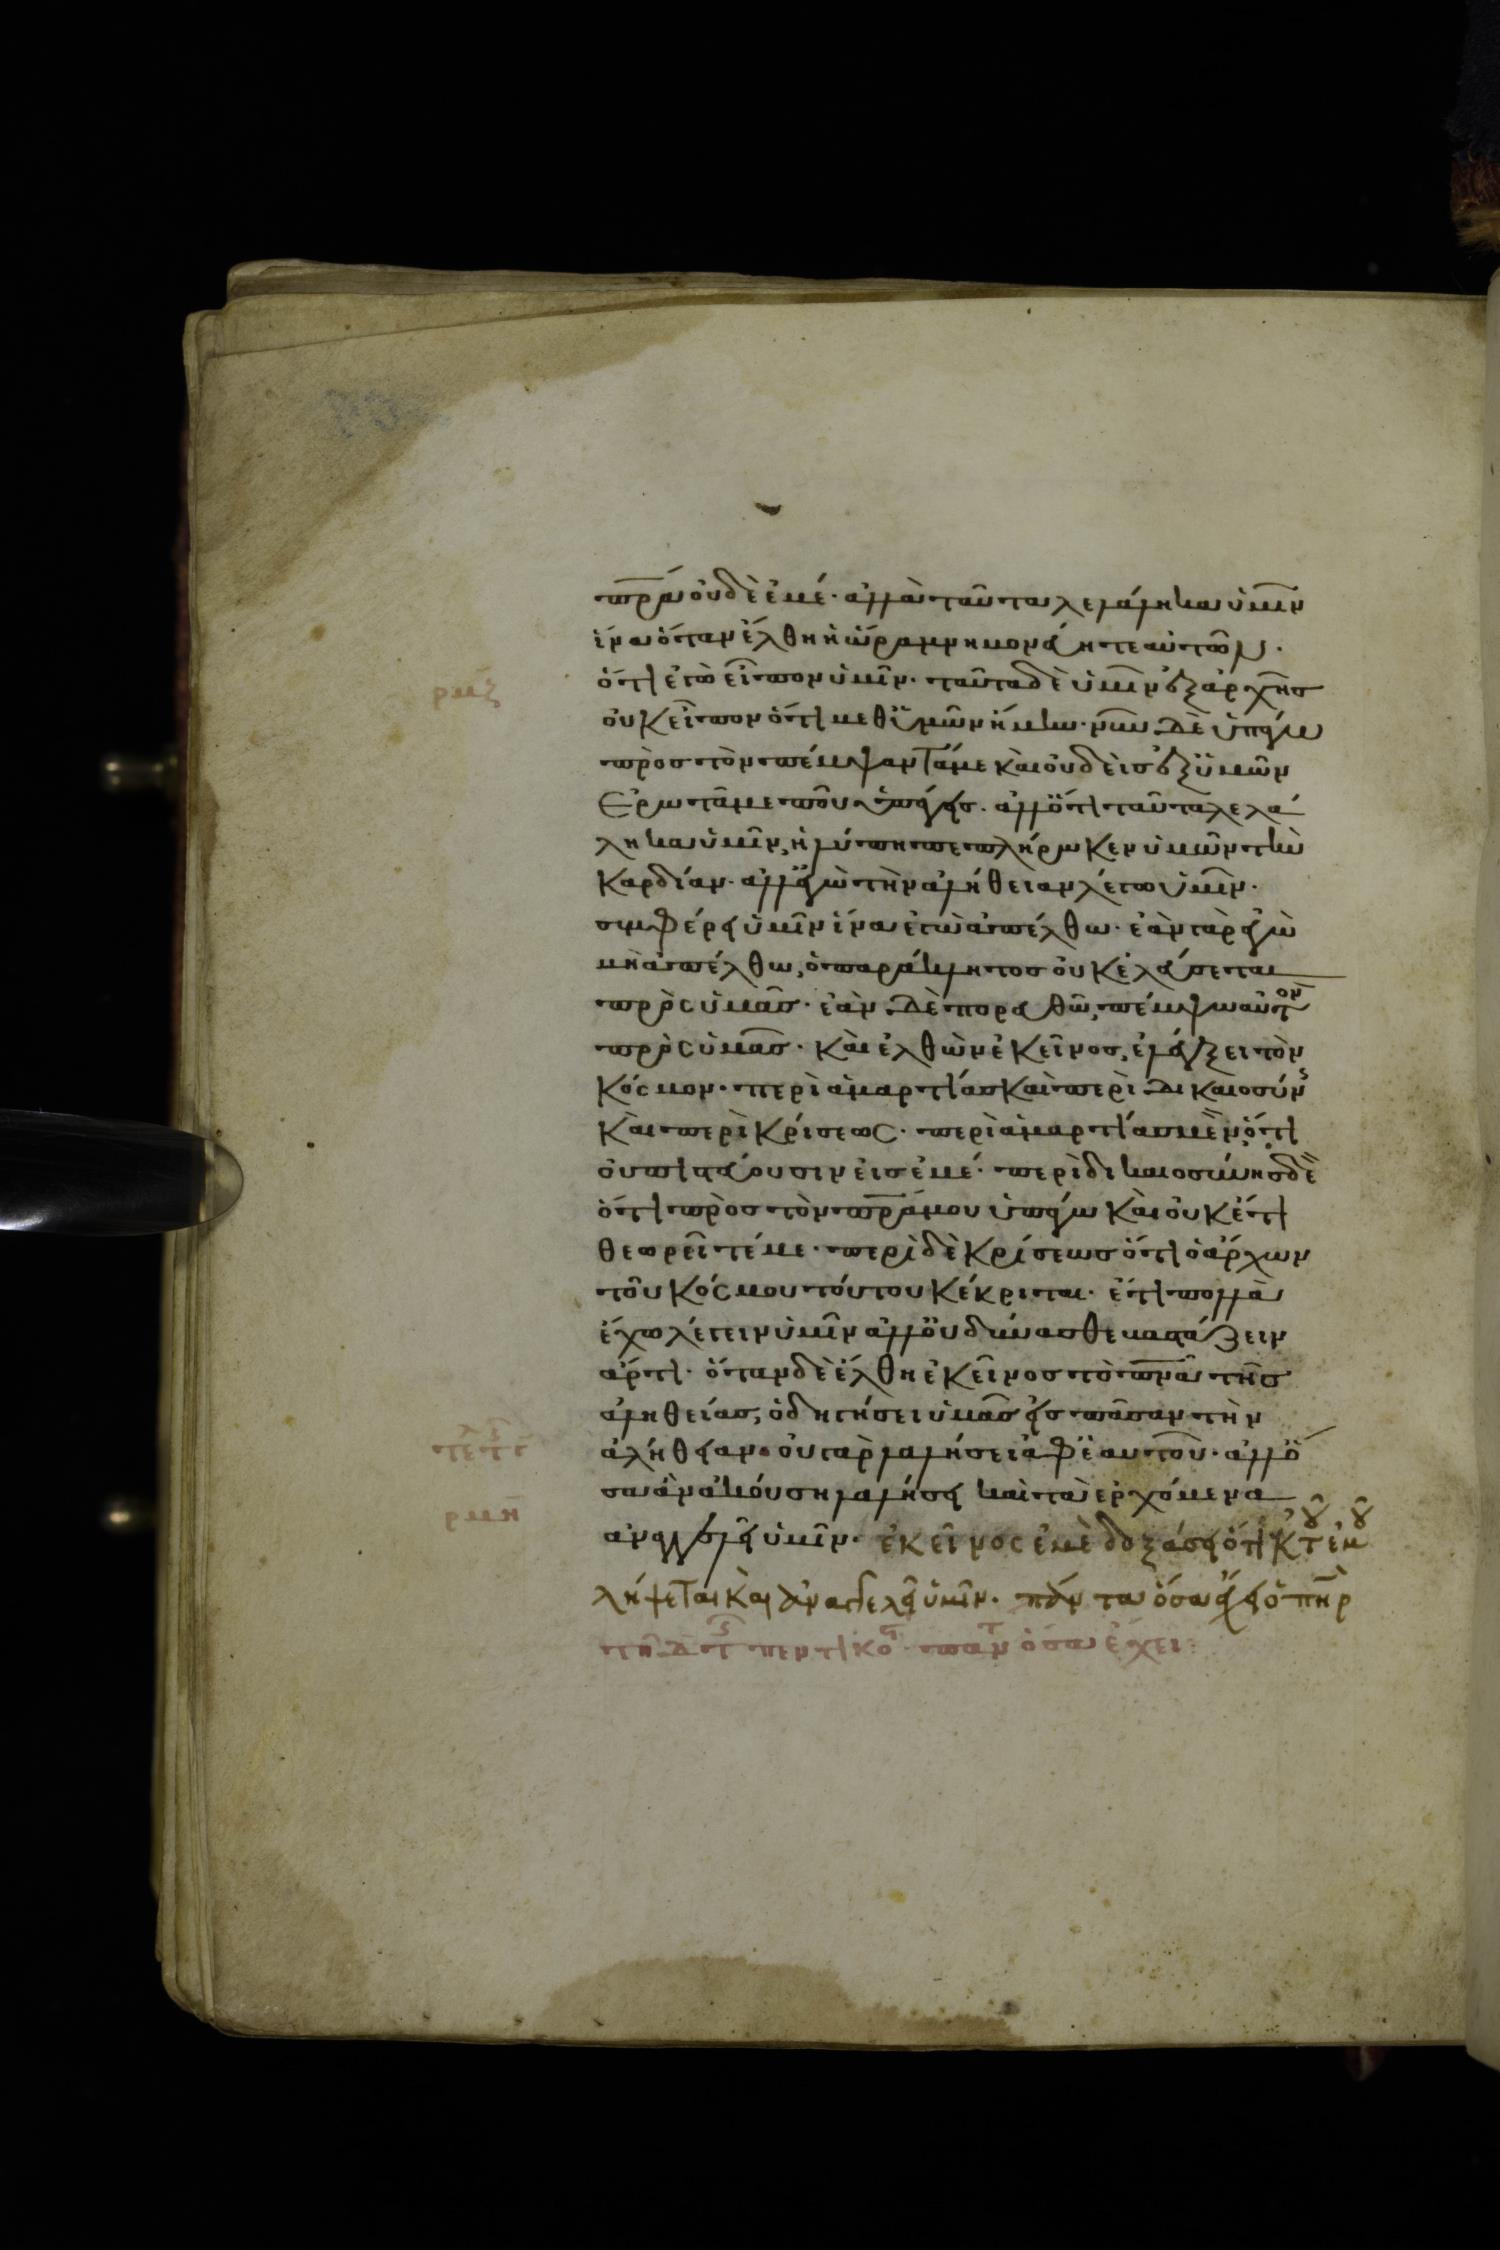 πρα οὐδὲ ἐμέ· ἀλλὰ ταῦτα λελάληκα ὑμῖν
ἵνα ὅταν ἔλθη ἡ ὥρα μνημονεύητε αὐτῶν·
ρμζ
ὅτι ἐγὼ εἶπον ὑμῖν· ταῦτα δὲ ὑμῖν ἐξ ἀρχῆς
οὐκ εἶπον ὅτι μεθ ὑμῶν ἤμην· νῦν δὲ ὑπάγω
πρὸς τὸν πέμψαντά με καὶ οὐδεὶς ἐξ ὑμῶν
ἐρωτᾶ με ποῦ ὑπάγεις· ἀλλ ὅτι ταῦτα λελά
ληκα ὑμῖν, ἡ λύπη πεπλήρωκεν ὑμῶν τὴν
καρδίαν· ἀλλ ἐγὼ τὴν ἀλήθειαν λέγω ὑμῖν·
συμφέρει ὑμῖν ἵνα ἐγὼ ἀπέλθω· ἐὰν γὰρ ἐγὼ
μὴ ἀπέλθω, ὁ παράκλητος οὐκ ἐλεύσεται
πρὸς ὑμᾶς· ἐὰν δὲ πορευθῶ, πέμψω αὐτὸν
πρὸς ὑμᾶς· καὶ ἐλθὼν ἐκεῖνος, ἐλέγξει τὸν
κόσμον· περὶ ἁμαρτίας καὶ περὶ δικαιοσύν
καὶ περὶ κρίσεως· περὶ ἁμαρτίας μὲν, ὅτι
οὐ πιστεύουσιν εἰς ἐμέ· περὶ δικαιοσύνης δὲ
ὅτι πρὸς τὸν πρα μου ὑπάγω καὶ οὐκ ἔτι
θεωρεῖτέ με· περὶ δὲ κρίσεως ὅτι ὁ ἄρχων
τοῦ κόσμου τούτου κέκριται· ἔτι πολλὰ
ἔχω λέγειν ὑμῖν ἀλλ οὐ δύνασθε βαστάζειν
ἄρτι· ὅταν δὲ ἔλθη ἐκεῖνος τὸ πνα τῆς
ἀληθείας, ὁδηγήσει ὑμᾶς εἰς πᾶσαν τὴν
ἀλήθειαν· οὐ γὰρ λαλήσει ἀφ ἑαυτοῦ· ἀλλ ὅ
σα ἂν ἀκούση λαλήσει καὶ τὰ ἐρχόμενα
ρμη
ἀναγγελεῖ ὑμῖν· ἐκεῖνος ἐμὲ δοξάσει ὅτι ἐκ τοῦ ἐμοῦ
λήψεται καὶ ἀναγγελεῖ ὑμῖν· πάντα ὅσα ἔχει ὁ πηρ